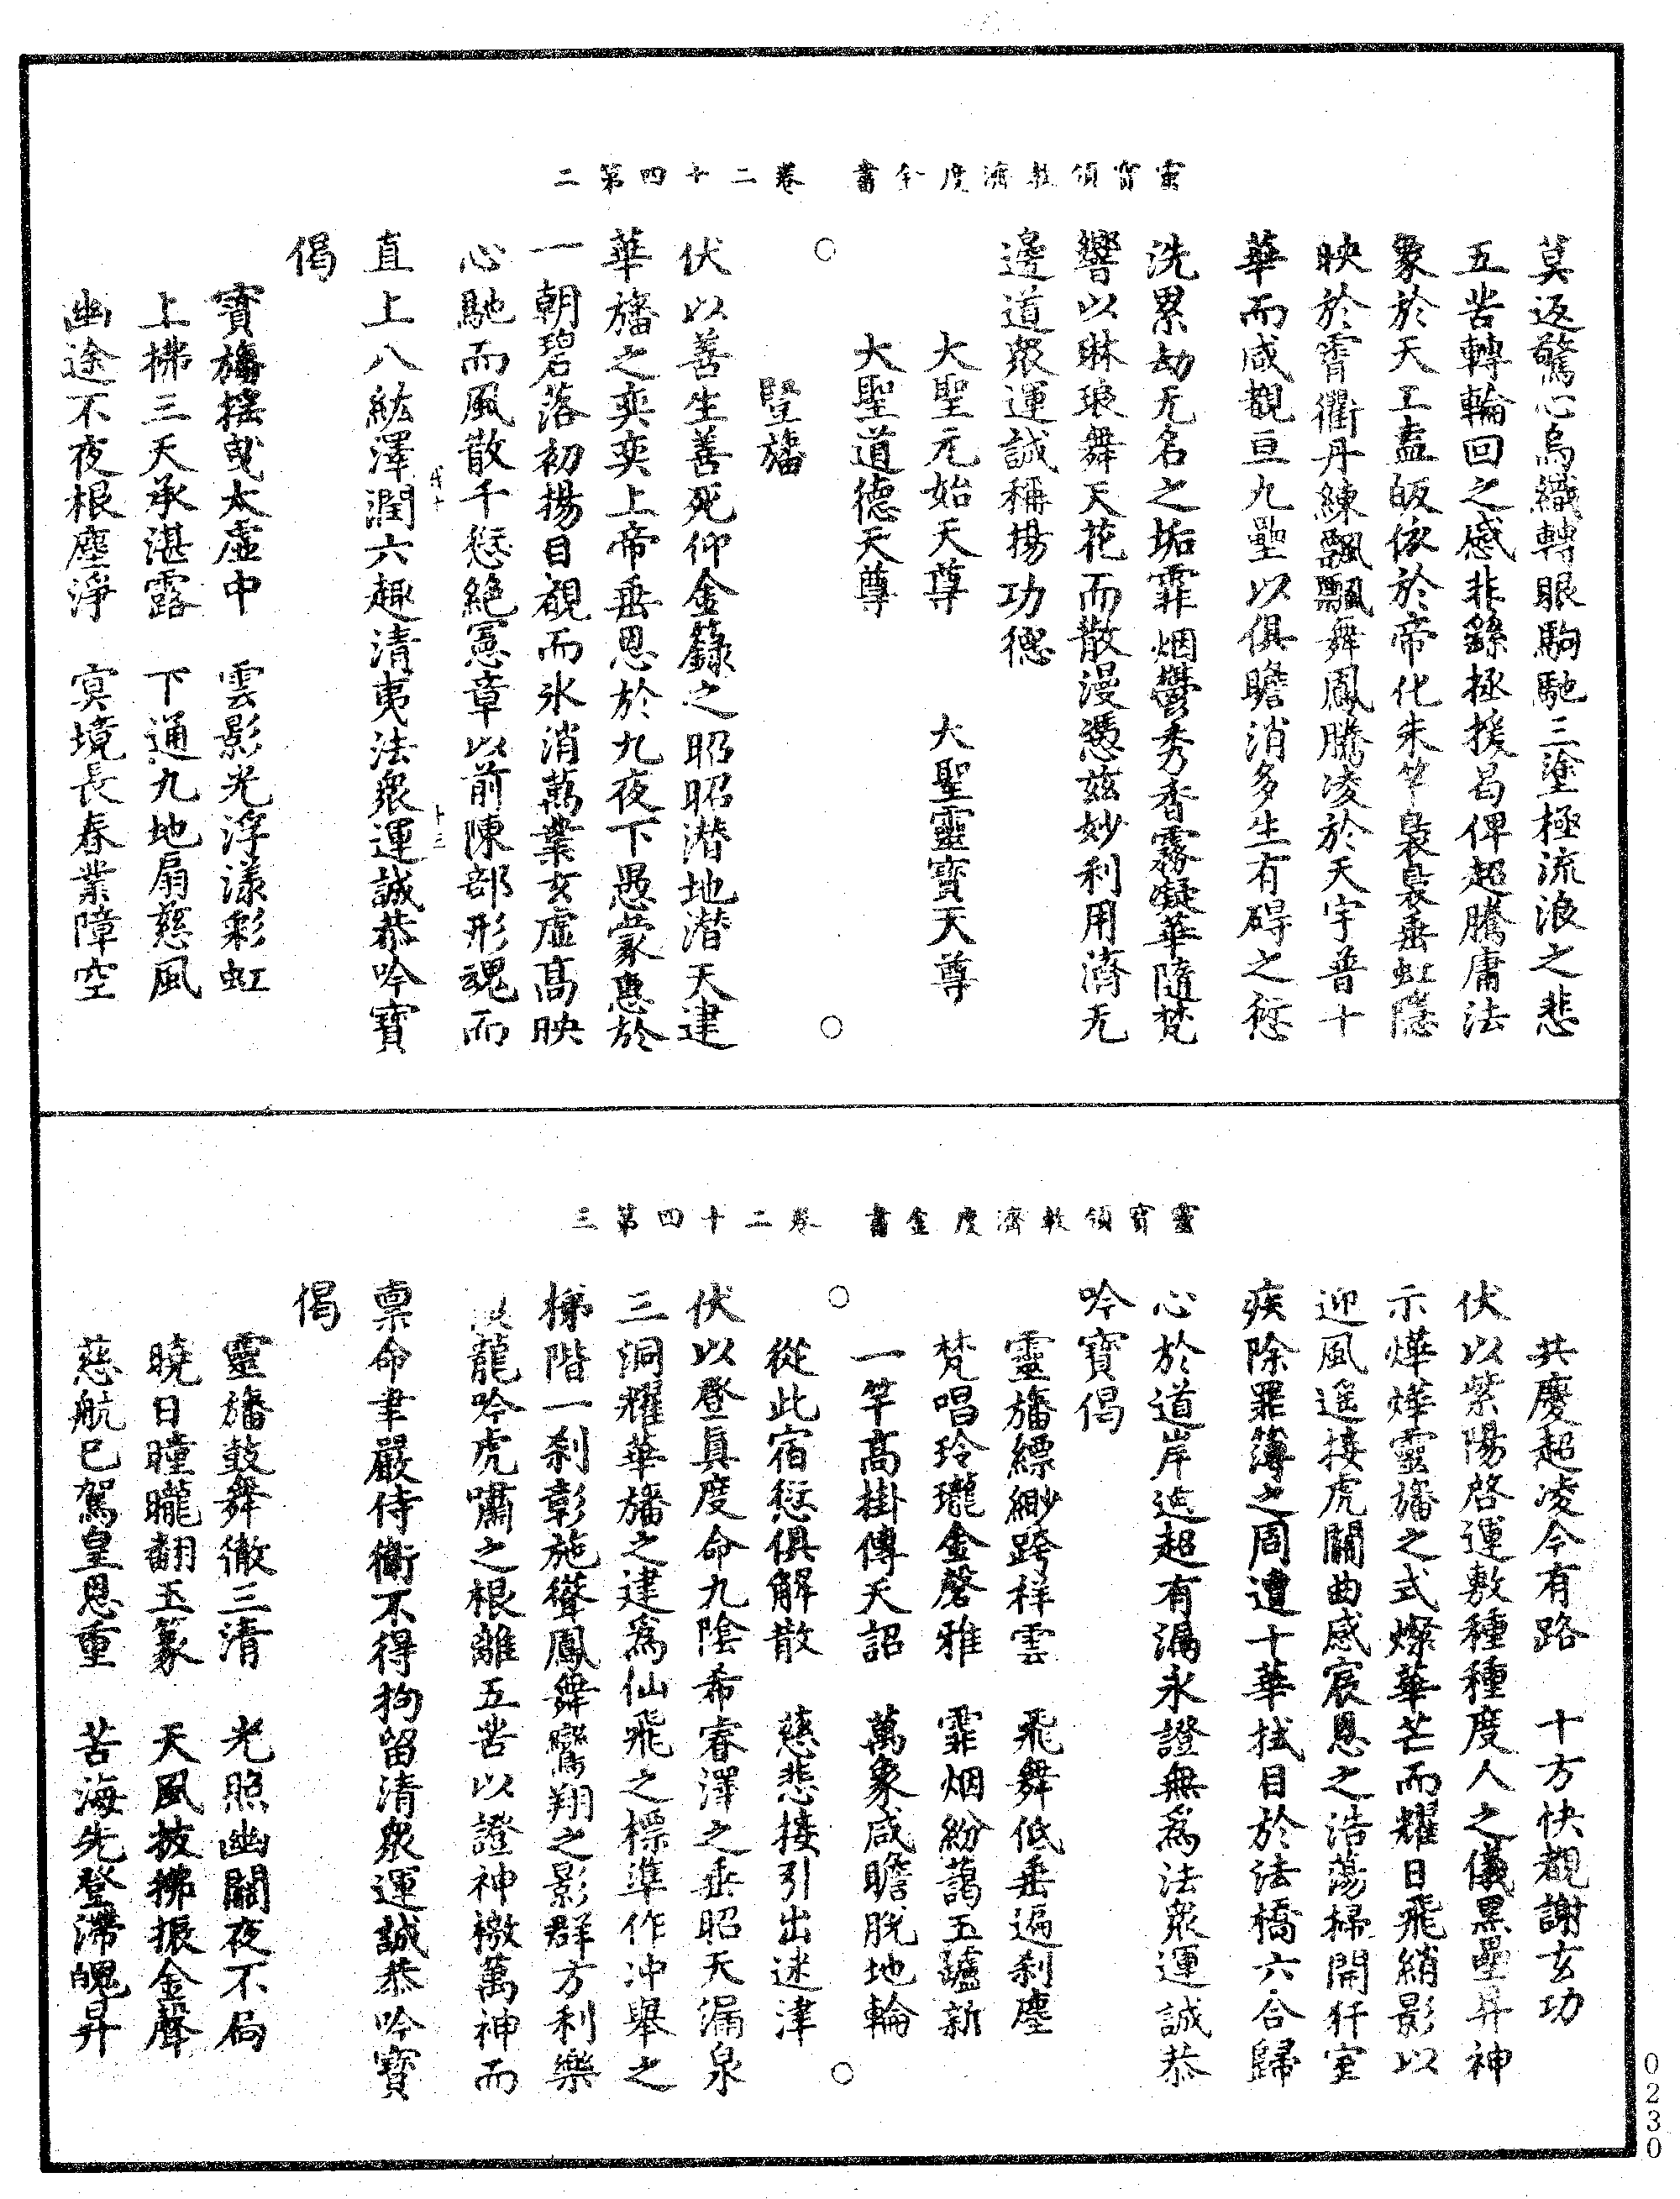 靈寶領教濟度金書　卷二十四第二
莫返驚心烏織轉眼駒馳三塗極流浪之悲
五苦轉輪回之感非繇拯援曷俾超騰庸法
象於天工盍皈依於帝化朱竿裊裊垂虹隱
映於霄衢丹練飄飄舞鳳騰凌於天宇普十
華而咸覩亘九壘以俱瞻消多生有碍之愆
洗累劫无名之垢霏烟鬱秀香霧凝華隨梵
響以琳琅舞天花而散漫憑茲妙利用濟无
邊道眾運誠稱揚功德
大聖元始天尊　大聖靈寶天尊
大聖道德天尊
○　○
竪旛
伏以善生善死仰金籙之昭昭潜地潜天建
華旛之奕奕上帝垂恩於九夜下愚蒙惠於
一朝碧落初揚目覩而氷消萬業玄虛高映
心馳而風散千愆絕冥章以前陳部形魂而
直上八紘澤潤六趣清夷法眾運誠恭吟寶
偈
寶旛搖曳太虛中　雲影光浮漾彩虹
上拂三天承湛露　下通九地扇慈風
幽途不夜根塵淨　冥境長春業障空
靈寶領教濟度金書　卷二十四第三
共慶超凌今有路　十方快覩謝玄功
伏以紫陽啓運敷種種度人之儀黑壘昇神
示燁燁靈旛之式燦華芒而耀日飛綃影以
迎風遙接虎關曲感宸恩之浩蕩掃開犴室
疾除罪簿之周遭十華拭目於法橋六合歸
心於道岸迄超有漏永證無爲法眾運誠恭
吟寶偈
靈旛縹緲跨祥雲　飛舞低垂遍刹塵
梵唱玲瓏金磬雅　霏烟紛藹玉罏新
一竿高掛傳天詔　萬象咸瞻脫地輪
從此宿愆俱解散　慈悲接引出迷津
○　○
伏以登眞度命九陰希睿澤之垂昭天漏泉
三洞耀華旛之建爲仙飛之標準作冲舉之
梯階一刹彰施聳鳳舞鸞翔之影群方利樂
龍吟虎嘯之根離五苦以證神檄萬神而
禀命聿嚴侍衞不得拘留清眾運誠恭吟寶
偈
靈旛鼓舞徹三清　光照幽關夜不扃
曉日瞳曨翻玉篆　天風披拂振金聲
慈航已駕皇恩重　苦海先登滯魄昇
0230